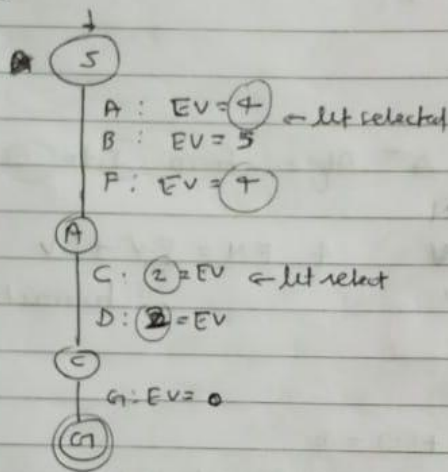 S
A : EV = 4 ← let selected
B : EV = 5
F : EV = 4
A
C : 2 = EV ← let select
D : 2 = EV
C
G : EV = 0
G